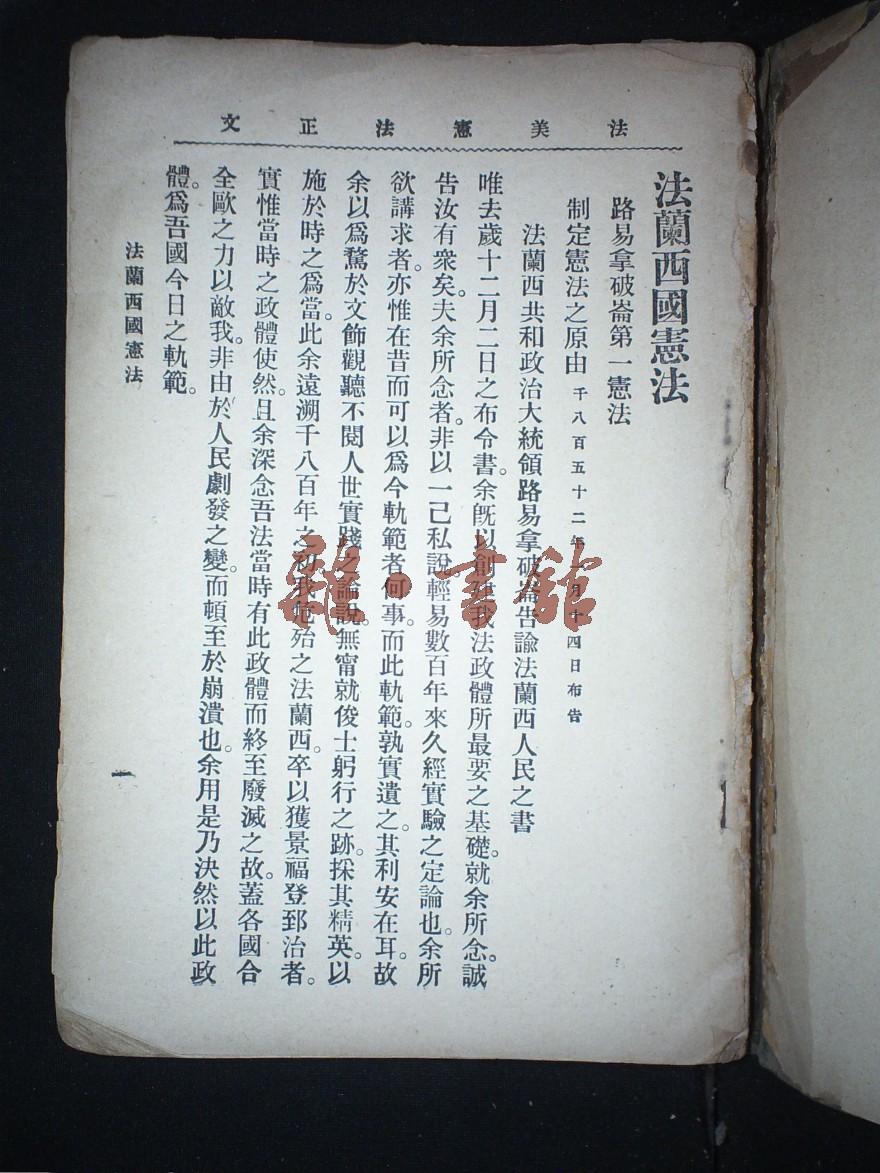 法美憲法正文
法蘭西國憲法
路易拿破崙第一憲法
制定憲法之原由 千八百五十二年一月十四日布告
法蘭西共和政治大統領路易拿破崙告諭法蘭西人民之書
唯去歲十二月二日之布令書。余旣以創建我法政體所最要之基礎。就余所念。誠
告汝有衆矣。夫余所念者。非以一己私說。輕易數百年來久經實驗之定論也。余所
欲講求者。亦惟在昔而可以爲今軌範者何事。而此軌範。孰實遺之。其利安在耳。故
余以爲騖於文飾觀聽不閱人世實踐之論說。無甯就俊士躬行之跡。採其精英。以
施於時之爲當。此余遠溯千八百年之初。我危殆之法蘭西。卒以獲景福登郅治者。
實惟當時之政體使然。且余深念吾法當時有此政體而終至廢滅之故。蓋各國合
全歐之力以敵我。非由於人民劇發之變。而頓至於崩潰也。余用是乃決然以此政
體。爲吾國今日之軌範。
法蘭西國憲法
一
雜·書館